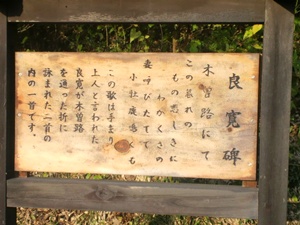 良寛碑
木曽路にて
この暮れの
もの悲しきに
わかくさの
妻呼びたてて
小牡鹿鳴くも
この歌は手まり
上人と言われた
良寛が木曽路
を通った折に
詠まれた二首の
内の一首です。